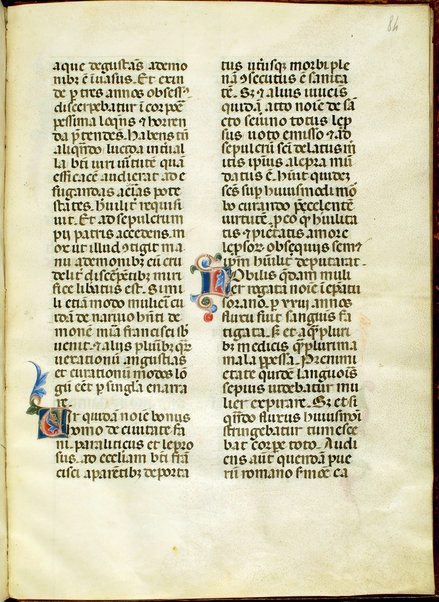 84
aque degustas a demo
nibꝫ ē īuasus. Et exin
de ꝑ tres annos obsess⁹
discerpebatur ī corpoe
pessima loq̄ns ⁊ horren
da ꝑtendes. Habens tn̄
aliqn̄do lucida intual
la bti uiri ūtute quā
efficacē audierat ad e
fugandas aēas pote
states. huiliť requisi
uit. Et ad sepulcrum
pij patris accedens. m̄
ox ut illud ɔtigit ma
nu a demonibꝫ eū cru
deliť discerpētibꝫ miri
fice libatus est. Simi
li etiā modo muliem cui
dā de narnio hn̄ti de
monē uirī francisci sb
uenit. ⁊ alijs pluribꝫ q̄r
uexationū angustias
et curationū modos lō
gū eēt ꝑ singla enarra
re.
Vir quidā noīe bonus
homo de ciuitate fa
ni. paraliticus et lepro
sus. ad eccliam bti frā
cisci a parētibꝫ deporta
tus utriusqꝫ morbi ple
nā ɔsecutus ē sanita
tē. Sꝫ ⁊ alius iuueis
quidā atto noīe de sā
cto seuino totus lep
sus uoto emisso ⁊ ad
sepulcrū scī delatus m̄
itis ip̄ius a lepra mū
datus ē. hūit quidez
scūs suꝑ huiusmodi mo
bo curando p̄cellentē
uirtutē. ꝑ eo qꝫ huilita
tis ⁊ pietatis amore
leprosoꝝ obsequijs semet
ip̄m hūiliť deputarat.
Nobilis q̄dam muli
er rogata noīe ī ep̄atu
sorano. ꝑ xxiij annos
fluxu fūit sanguīs fa
tigata. Sꝫ et a q̄m pluri
bꝫ medicis q̄m plurima
mala ꝑpessa. P̄ nimi
etate quidē languoris
sepius uidebatur mu
lier expirare. Sꝫ et si
qn̄do fluxus huiusm̄oi
stringebatur tumesce
bat corpꝫ toto. Audi
ens aūt quendā pue
rū romano ꝭmōe ca